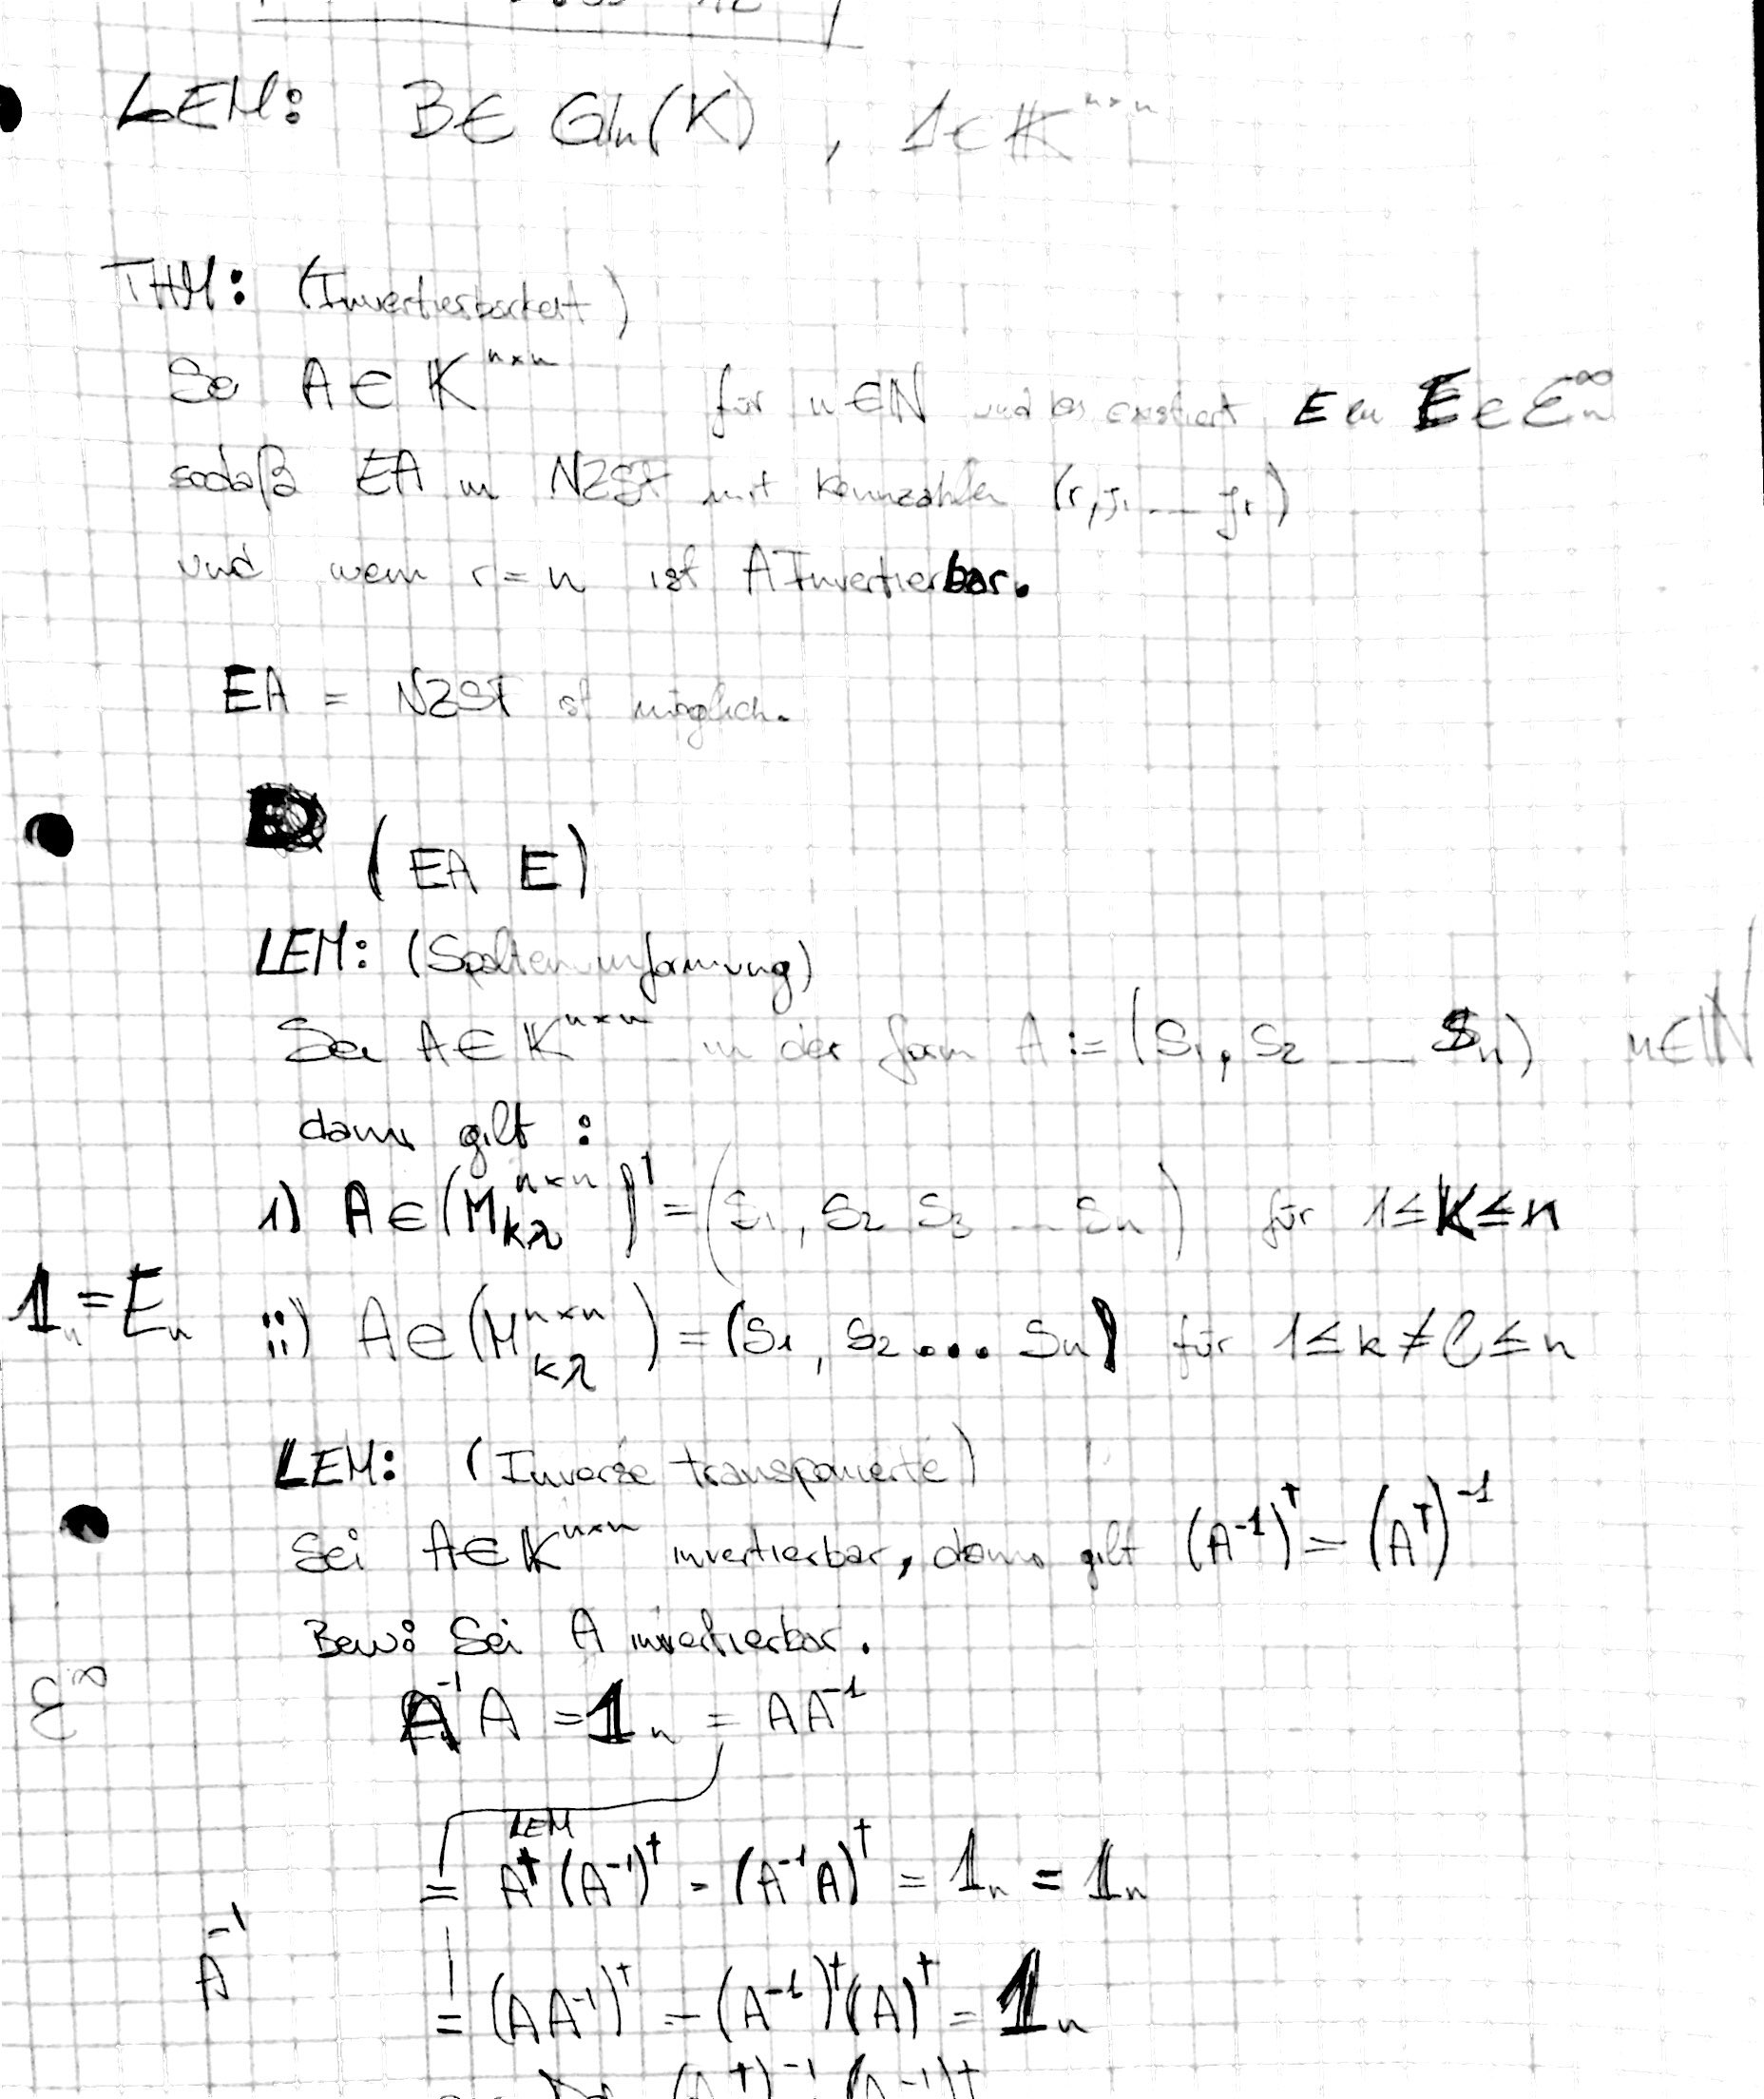 LEM: B ∈ Gln(K) , 1 ∈ K^{n×n}
THM: (Invertierbarkeit)
Se A ∈ K^{n×n} für n ∈ N und es existiert E ein E ∈ ℰ_n^∞
sodaß EA in NZST mit Kennzahlen (r, j₁ ... jᵣ)
und wenn r = n ist A Invertierbar.
EA = NZST ist möglich.
(EA E)
LEM: (Spaltenumformung)
Sei A ∈ K^{n×n} in der form A := (S₁, S₂ ... Sₙ) n ∈ N
dann gilt :
i) A ∈ (M_{kλ}^{n×n})' = (S₁, S₂ S₃ ... Sₙ) für 1 ≤ K ≤ n
1ₙ = Eₙ
ii) A ∈ (M_{kλ}^{n×n}) = (S₁, S₂ ... Sₙ) für 1 ≤ k ≠ l ≤ n
LEM: (Inverse transponierte)
Sei A ∈ K^{n×n} invertierbar, dann gilt (A⁻¹)^T = (A^T)⁻¹
Bew: Sei A invertierbar.
ℰ^∞
A⁻¹A = 1ₙ = AA⁻¹
LEM
= A^T (A⁻¹)^T = (A⁻¹A)^T = 1ₙ = 1ₙ
A⁻¹
= (AA⁻¹)^T = (A⁻¹)^T (A)^T = 1ₙ